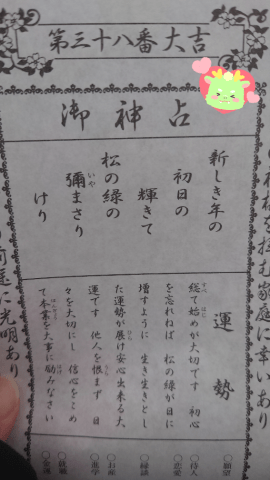 第三十八番 大吉
御神占
新しき年の
初日の
輝きて
松の緑の
彌まさり
いや
けり
運勢
総て始めが大切です 初心
すべ はじ
を忘れねば 松の緑が日に
増すように 生き生きとし
た運勢が展け安心出来る大
ひら
運です 他人を恨まず 日
々を大切にし 信心をこめ
て本業を大事に励みなさい
〇願望
〇待人
〇恋愛
〇縁談
〇お産
〇進学
〇就職
〇金運
を拝む家庭に幸い有り
家庭に光明あり